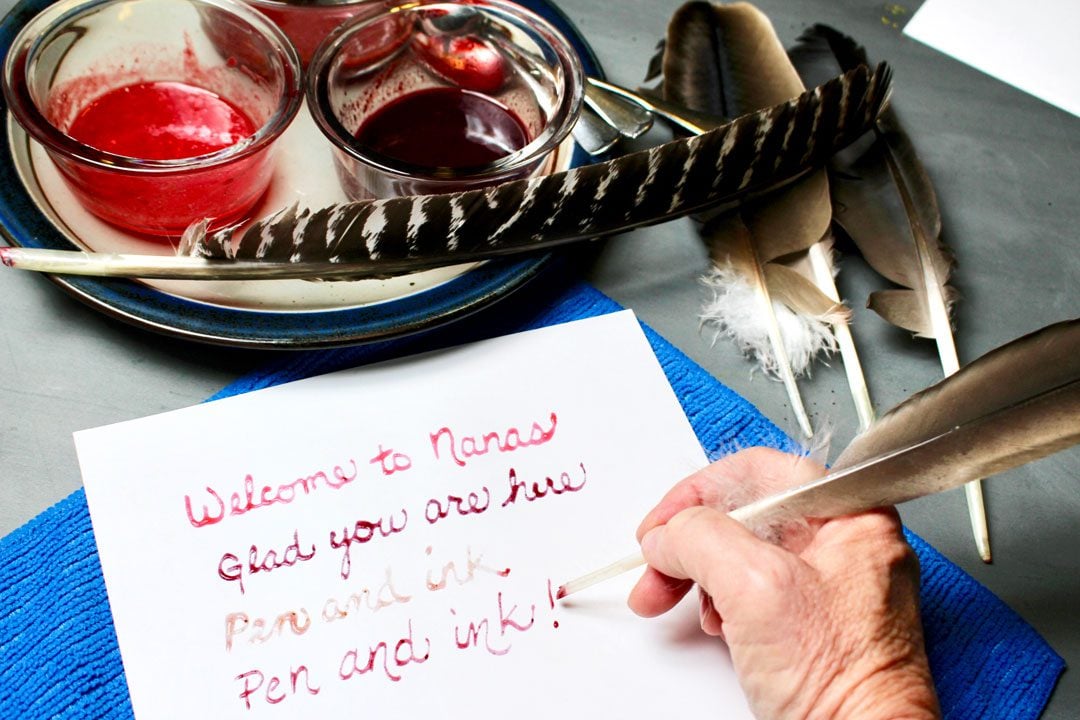 Welcome to Nanas
Glad you are here
Pen and ink.
Pen and ink!